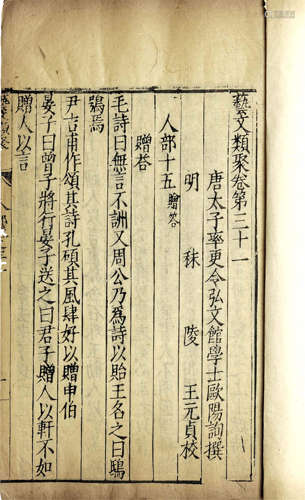 藝文類聚卷第三十一
唐太子率更令弘文館學士歐陽詢撰
明 秣陵 王元貞校
人部十五 贈答
贈答
毛詩曰無言不詶又周公乃爲詩以貽王名之曰鴟
鴞焉
尹吉甫作頌其詩孔碩其風肆好以贈申伯
晏子曰曾子將行晏子送之曰君子贈人以軒不如
贈人以言